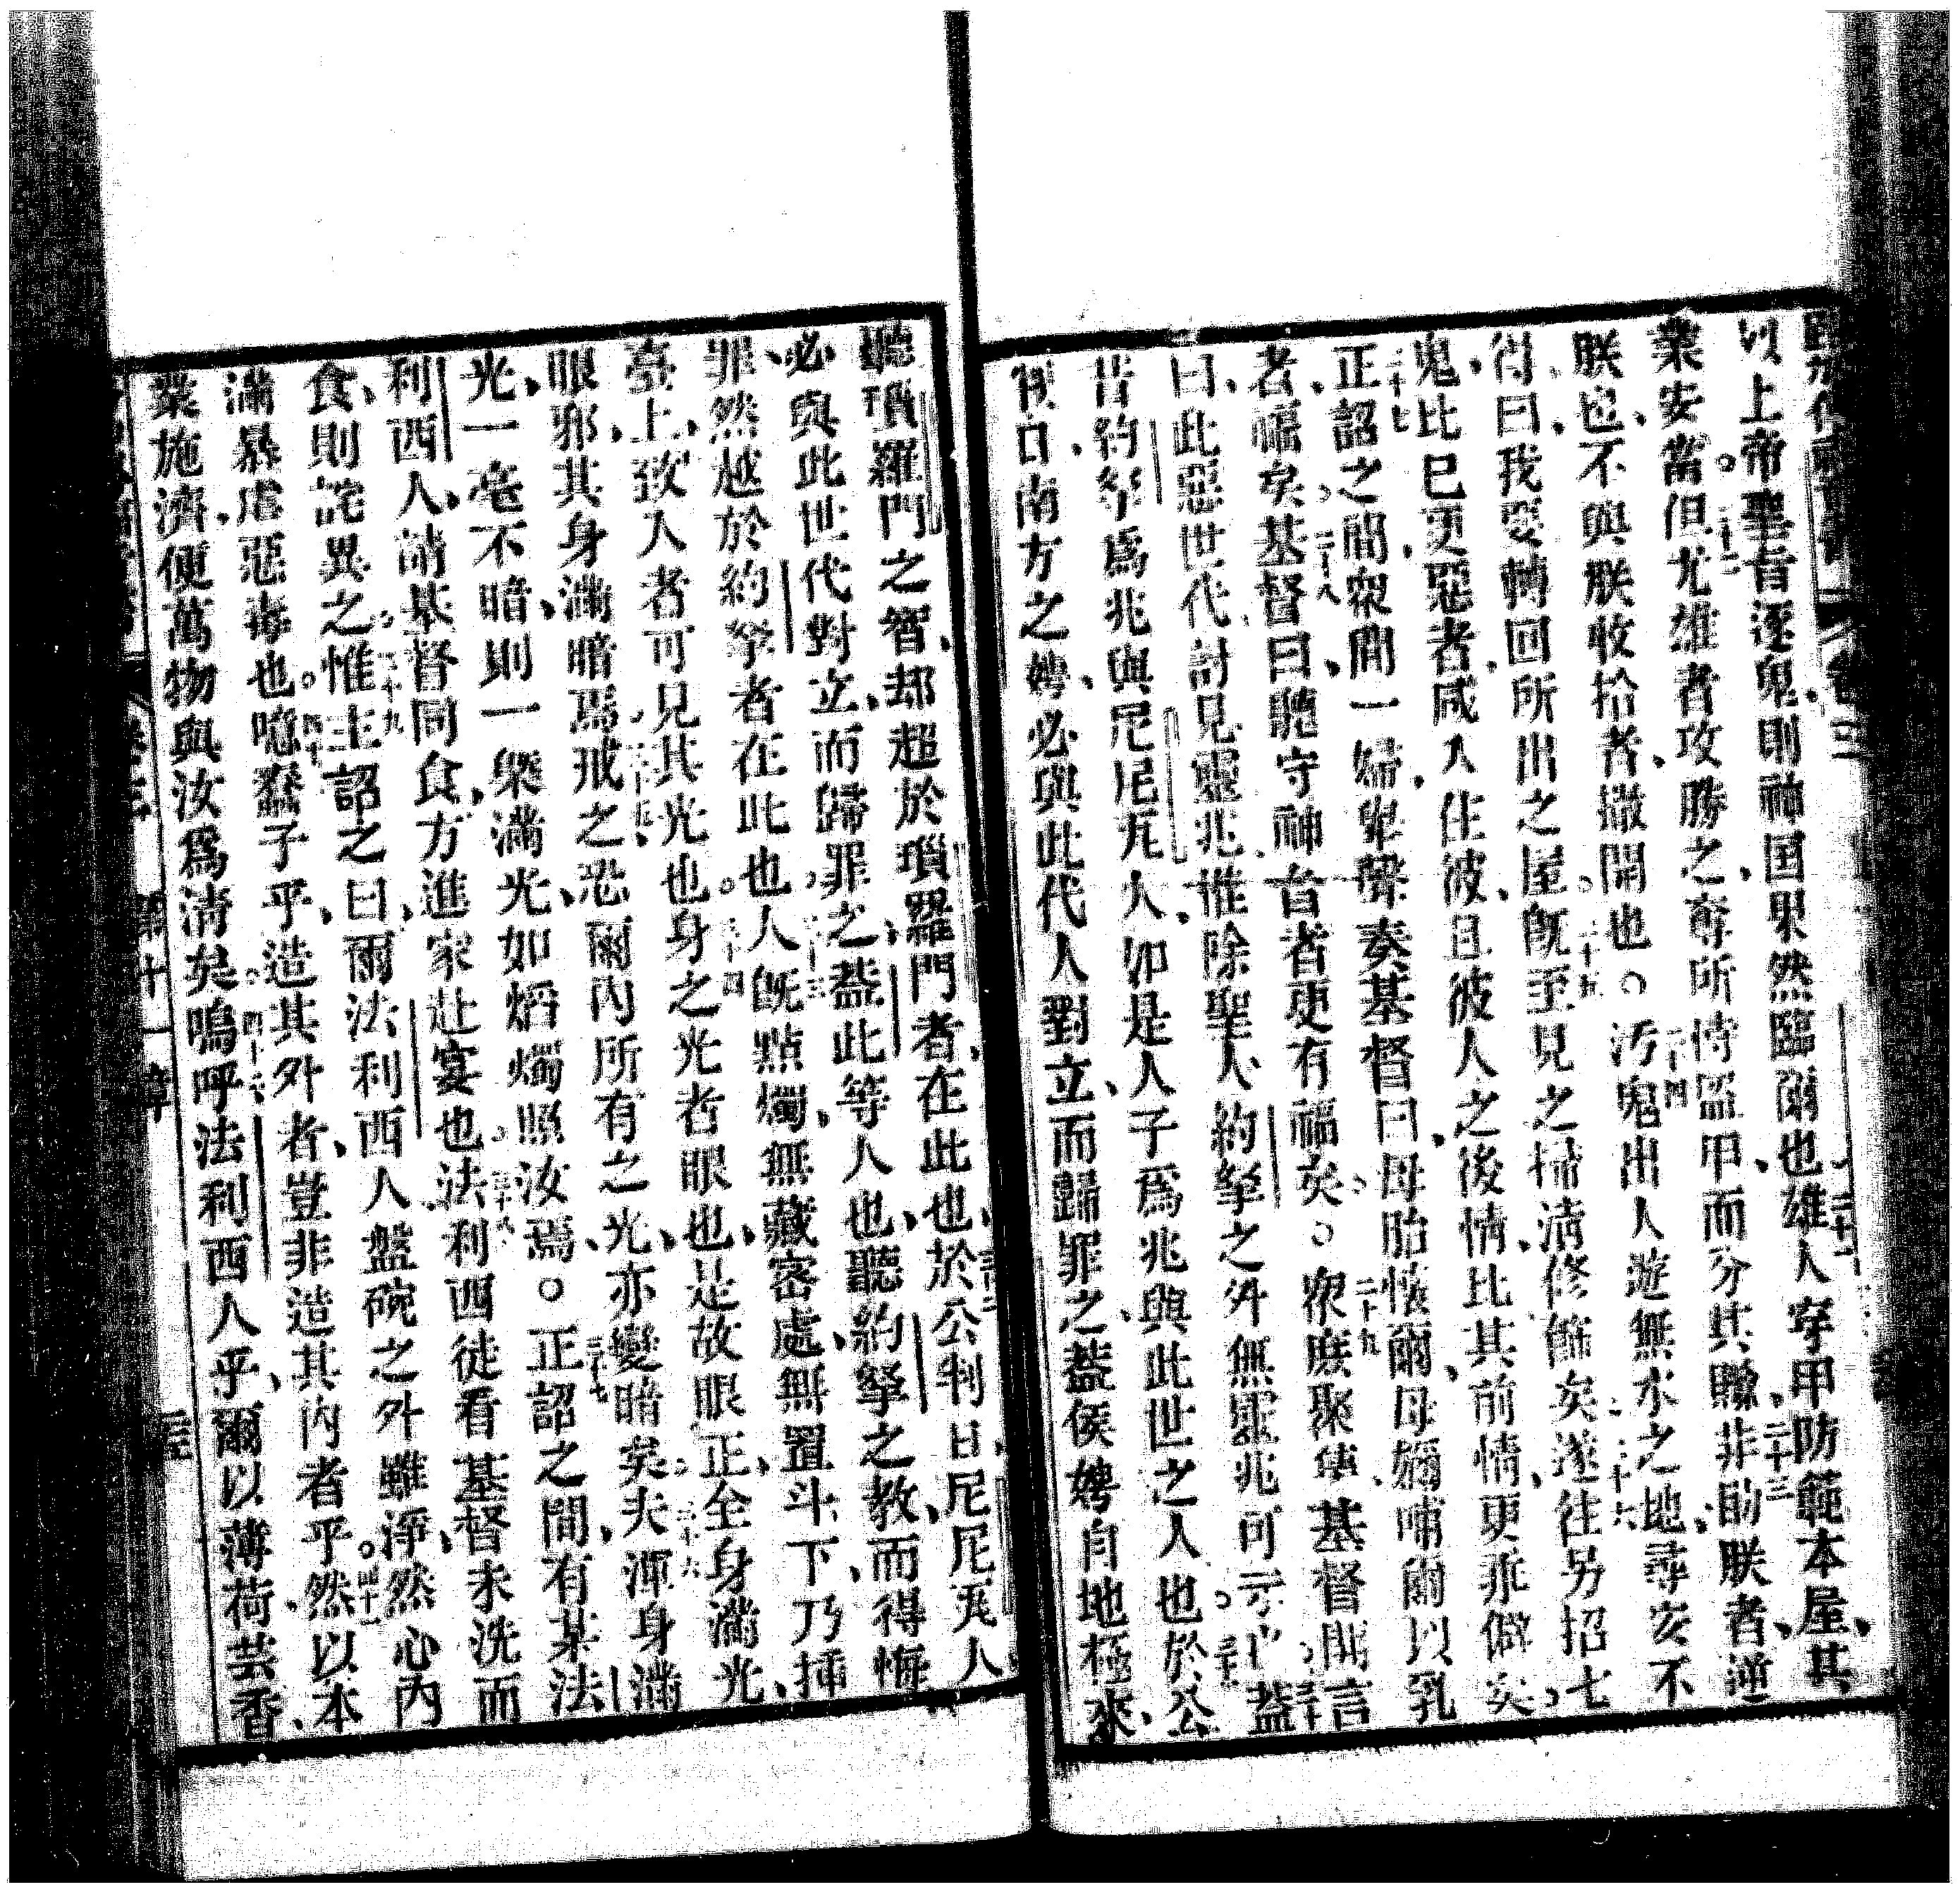 以上帝聖旨逐鬼、則神国果然臨爾也、二十一雄人穿甲防範本屋、其
業安當。二十二但尤雄者攻勝之、奪所恃盔甲、而分其贓、二十三非助朕者、逆
朕也、不與朕收拾者、撒開也。○二十四汚鬼出人遊無水之地、尋安不
得、曰、我要轉回所出之屋。二十五既至見之掃淸修飾矣、二十六遂往另招七
鬼、比已更惡者、咸入住彼、且彼人之後情、比其前情、更乖僻矣、
二十七正詔之間、衆間一婦、舉聲奏基督曰、母胎懷爾、母嬭哺爾以乳
者、福矣、二十八基督曰、聽守神旨者更有福矣。○二十九衆庶聚集、基督開言
曰、此惡世代討見靈兆、惟除聖人約拏之外、無靈兆可示也、三十蓋
昔約拏爲兆與尼尼瓦人、卽是人子爲兆與此世之人也。三十一於公
判日、南方之娉、必與此代人對立、而歸罪之、蓋侯娉自地極來、
聽瑣羅門之智、却超於瑣羅門者、在此也、三十二於公判日、尼尼瓦人
必與此世代對立、而歸罪之、蓋此等人也、聽約拏之教、而得悔
罪、然越於約拏者在此也、三十三人既點燭、無藏密處、無置斗下、乃揷
臺上、致入者可見其光也。三十四身之光者眼也、是故眼正、全身滿光、
眼邪、其身滿暗焉、三十五戒之、恐爾內所有之光、亦變暗矣、三十六夫渾身滿
光、一毫不暗、則一槩滿光、如熖燭照汝焉。○三十七正詔之間、有某法
利西人、請基督同食、方進家赴宴也。三十八法利西徒看基督未洗而
食、則詫異之、三十九惟主詔之曰、爾法利西人、盤碗之外雖淨、然心內
滿暴虐惡毒也。四十噫蠢子乎、造其外者、豈非造其內者乎。四十一然以本
業施濟、便萬物與汝爲淸矣、四十二嗚呼法利西人乎、爾以薄荷芸香、
第十一章